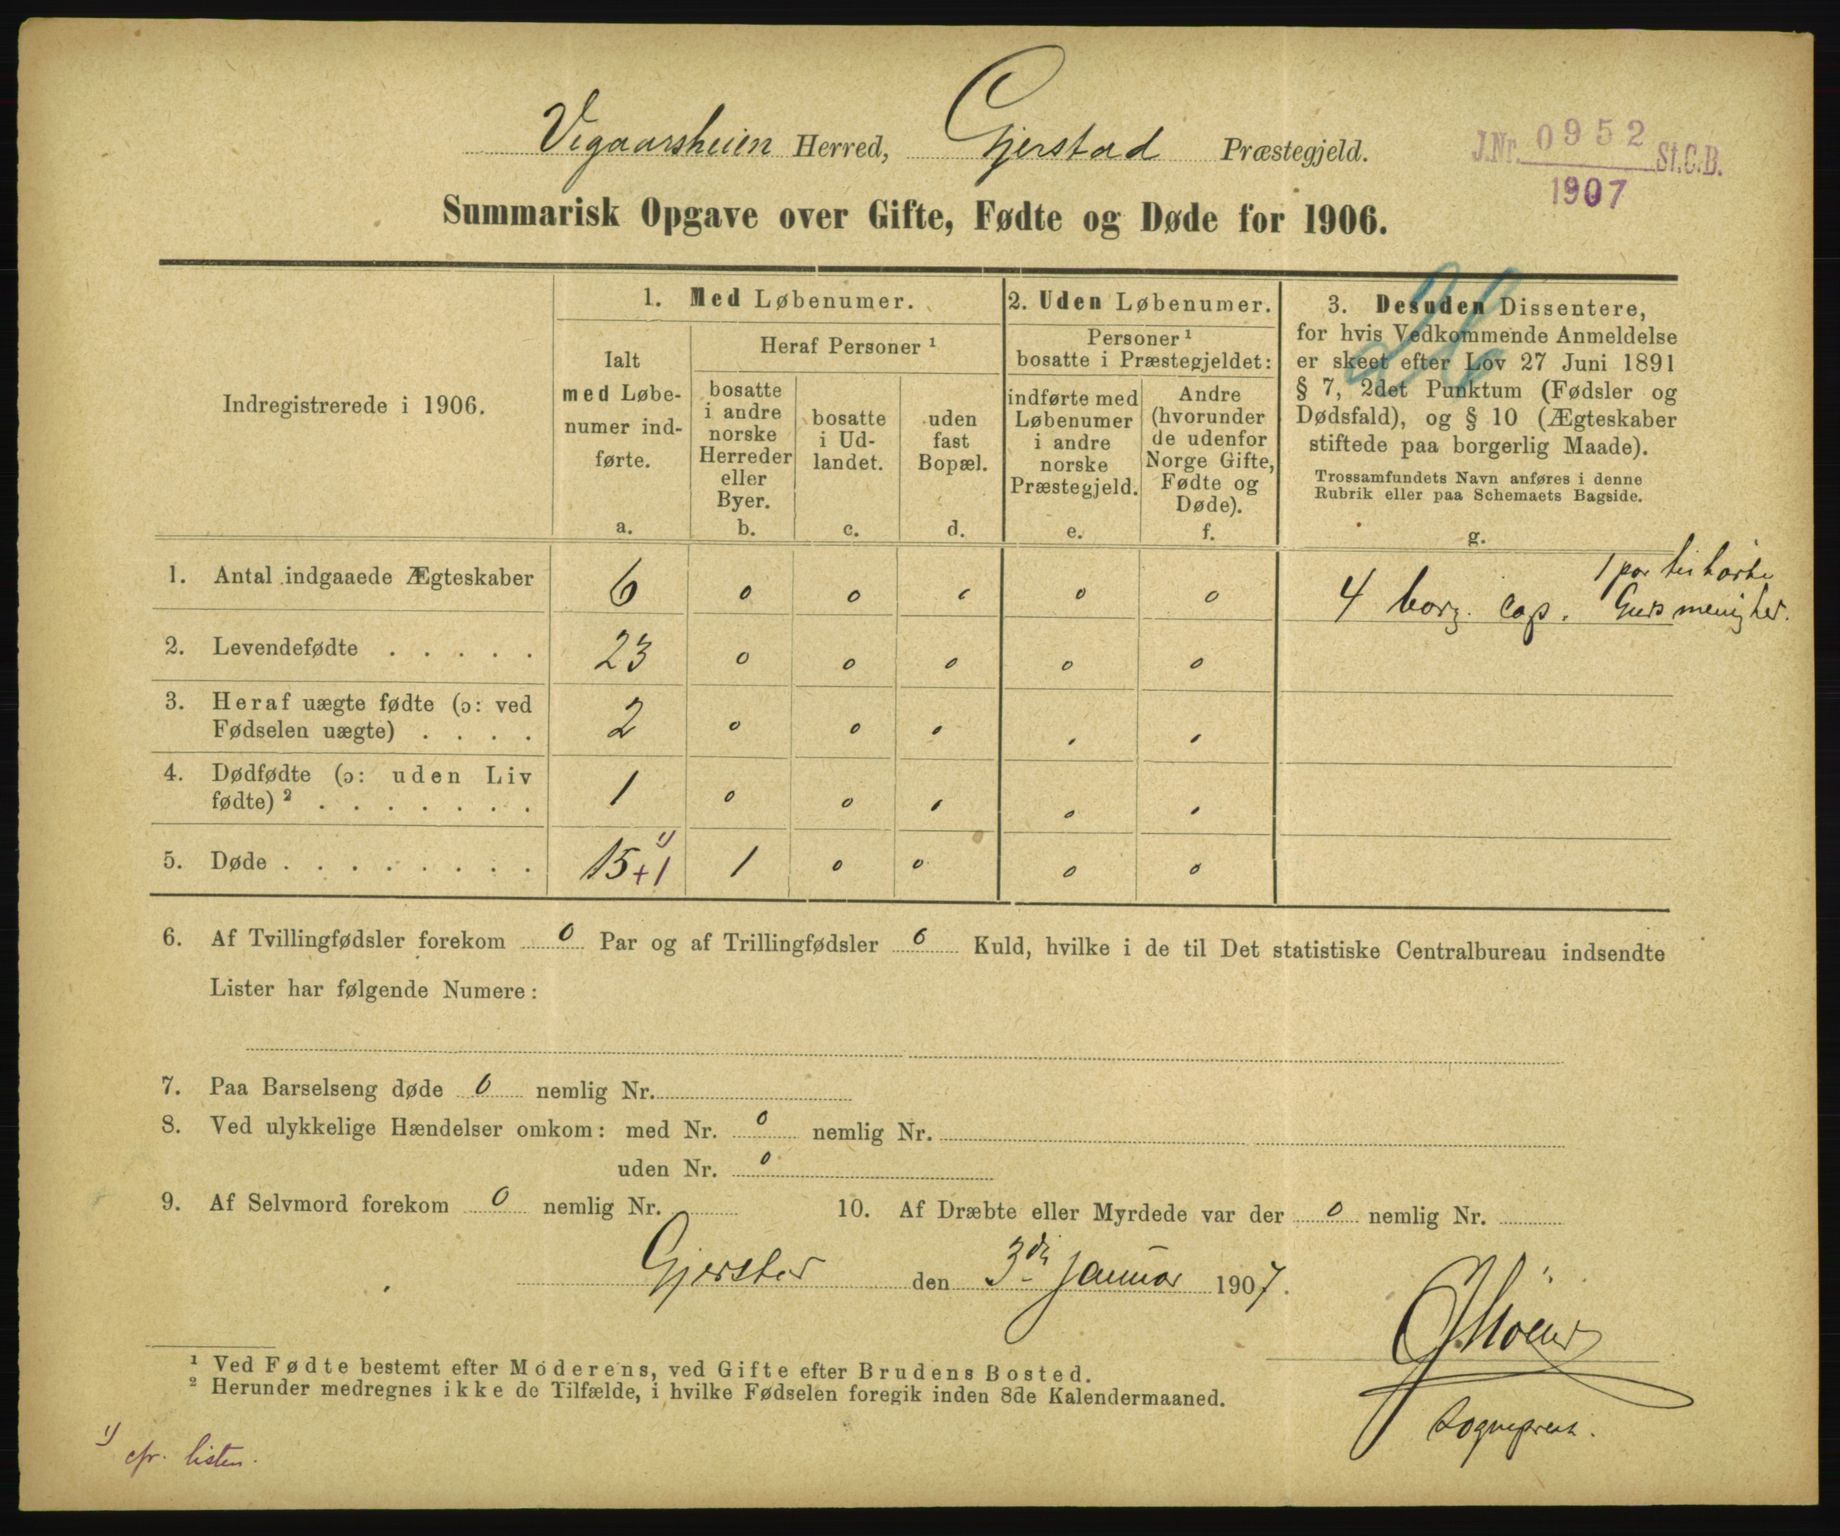 Vegaarsheien Herred, Gjerstad Præstegjeld.
J.Nr. 0952 St.C.B.
1907
Summarisk Opgave over Gifte, Fødte og Døde for 1906.
Indregistrerede i 1906.
1. Med Løbenumer.
Ialt
med Løbe-
numer ind-
førte.
a.
Heraf Personer ¹
bosatte
i andre
norske
Herreder
eller
Byer.
b.
bosatte
i Ud-
landet.
c.
uden
fast
Bopæl.
d.
2. Uden Løbenumer.
Personer ¹
bosatte i Præstegjeldet:
indførte med
Løbenumer
i andre
norske
Præstegjeld.
e.
Andre
(hvorunder
de udenfor
Norge Gifte,
Fødte og
Døde).
f.
3. Desuden Dissentere,
for hvis Vedkommende Anmeldelse
er skeet efter Lov 27 Juni 1891
§ 7, 2det Punktum (Fødsler og
Dødsfald), og § 10 (Ægteskaber
stiftede paa borgerlig Maade).
Trossamfundets Navn anføres i denne
Rubrik eller paa Schemaets Bagside.
g.
1. Antal indgaaede Ægteskaber 6 0 0 0 0 0 4 borg. cop. 1 par
2. Levendefødte . . . . . 23 0 0 0 0 0
3. Heraf uægte fødte (ɔ: ved
Fødselen uægte) . . . . 2 0 0 0
4. Dødfødte (ɔ: uden Liv
fødte) ² . . . . . . . 1 0 0 0 0
5. Døde . . . . . . . . 15 +1 ¹) 1 0 0 0 0
6. Af Tvillingfødsler forekom 0 Par og af Trillingfødsler 0 Kuld, hvilke i de til Det statistiske Centralbureau indsendte
Lister har følgende Numere:
7. Paa Barselseng døde 0 nemlig Nr.
8. Ved ulykkelige Hændelser omkom: med Nr. 0 nemlig Nr.
uden Nr. 0
9. Af Selvmord forekom 0 nemlig Nr. 10. Af Dræbte eller Myrdede var der 0 nemlig Nr.
Gjerstad den 3die Januar 1907.
Sogneprest.
¹ Ved Fødte bestemt efter Moderens, ved Gifte efter Brudens Bosted.
² Herunder medregnes ikke de Tilfælde, i hvilke Fødselen foregik inden 8de Kalendermaaned.
¹) cfr. listen.